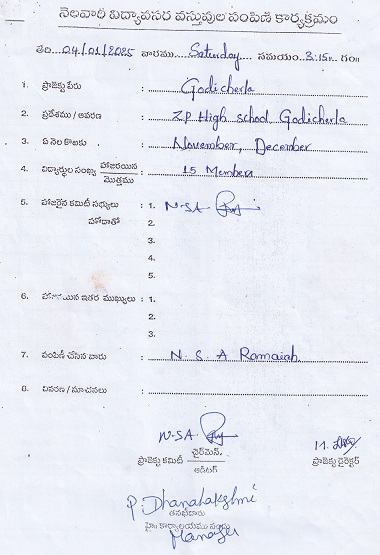 నెలవారీ విద్యావసర వస్తువుల పంపిణీ కార్యక్రమం
తేది: 04/01/2025 వారము Saturday సమయం 3:15 గం॥
1. ప్రాజెక్టు పేరు : Godicherla
2. ప్రదేశము / ఆవరణ : Z.P High school, Godicherla
3. ఏ నెల కొఱకు : November, December
4. విద్యార్థుల సంఖ్య హాజరయిన / మొత్తము : 15 Members
5. హాజరైన కమిటీ సభ్యులు : 1. N.SA
హోదాతో 2.
3.
4.
5.
6. ఇతర ముఖ్యులు : 1.
2.
3.
7. పంపిణీ చేసిన వారు : N. S. A Ramaiah
8. వివరణ / సూచనలు :
N.SA
ప్రాజెక్టు కమిటీ ఛైర్మెన్. / ఆడిటర్
ప్రాజెక్టు డైరెక్టర్
P Dhanalakshmi
Manager